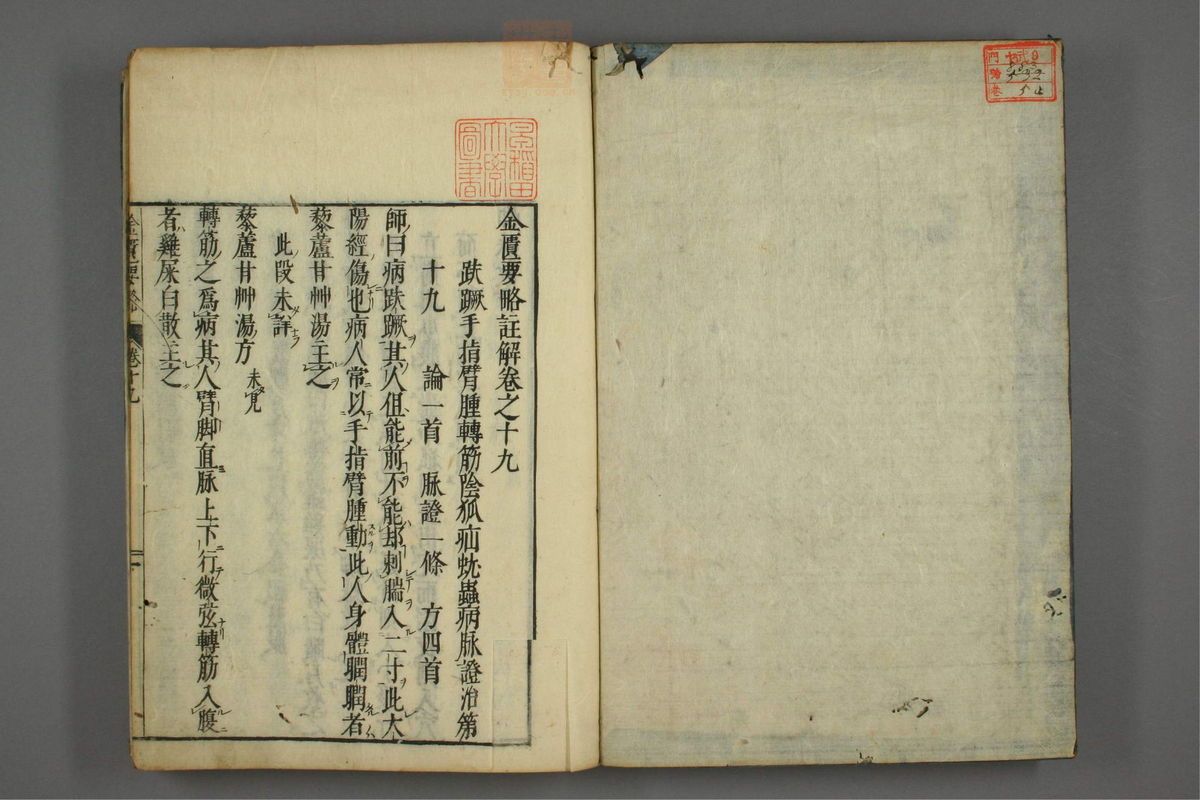 金匱要略註解卷之十九
趺蹶手指臂腫轉筋陰狐疝蚘蟲病脉證治第
十九 論一首 脉證一條 方四首
師曰病趺蹶其人但能前不能却刺腨入二寸此太
陽經傷也病人常以手指臂腫動此人身體瞤瞤者
藜蘆甘艸湯主之
此段未詳
藜蘆甘艸湯方 未見
轉筋之爲病其人臂脚直脉上下行微弦轉筋入腹
者雞屎白散主之
金匱要略 卷十九
早稻田
大學
圖書
門
號
卷